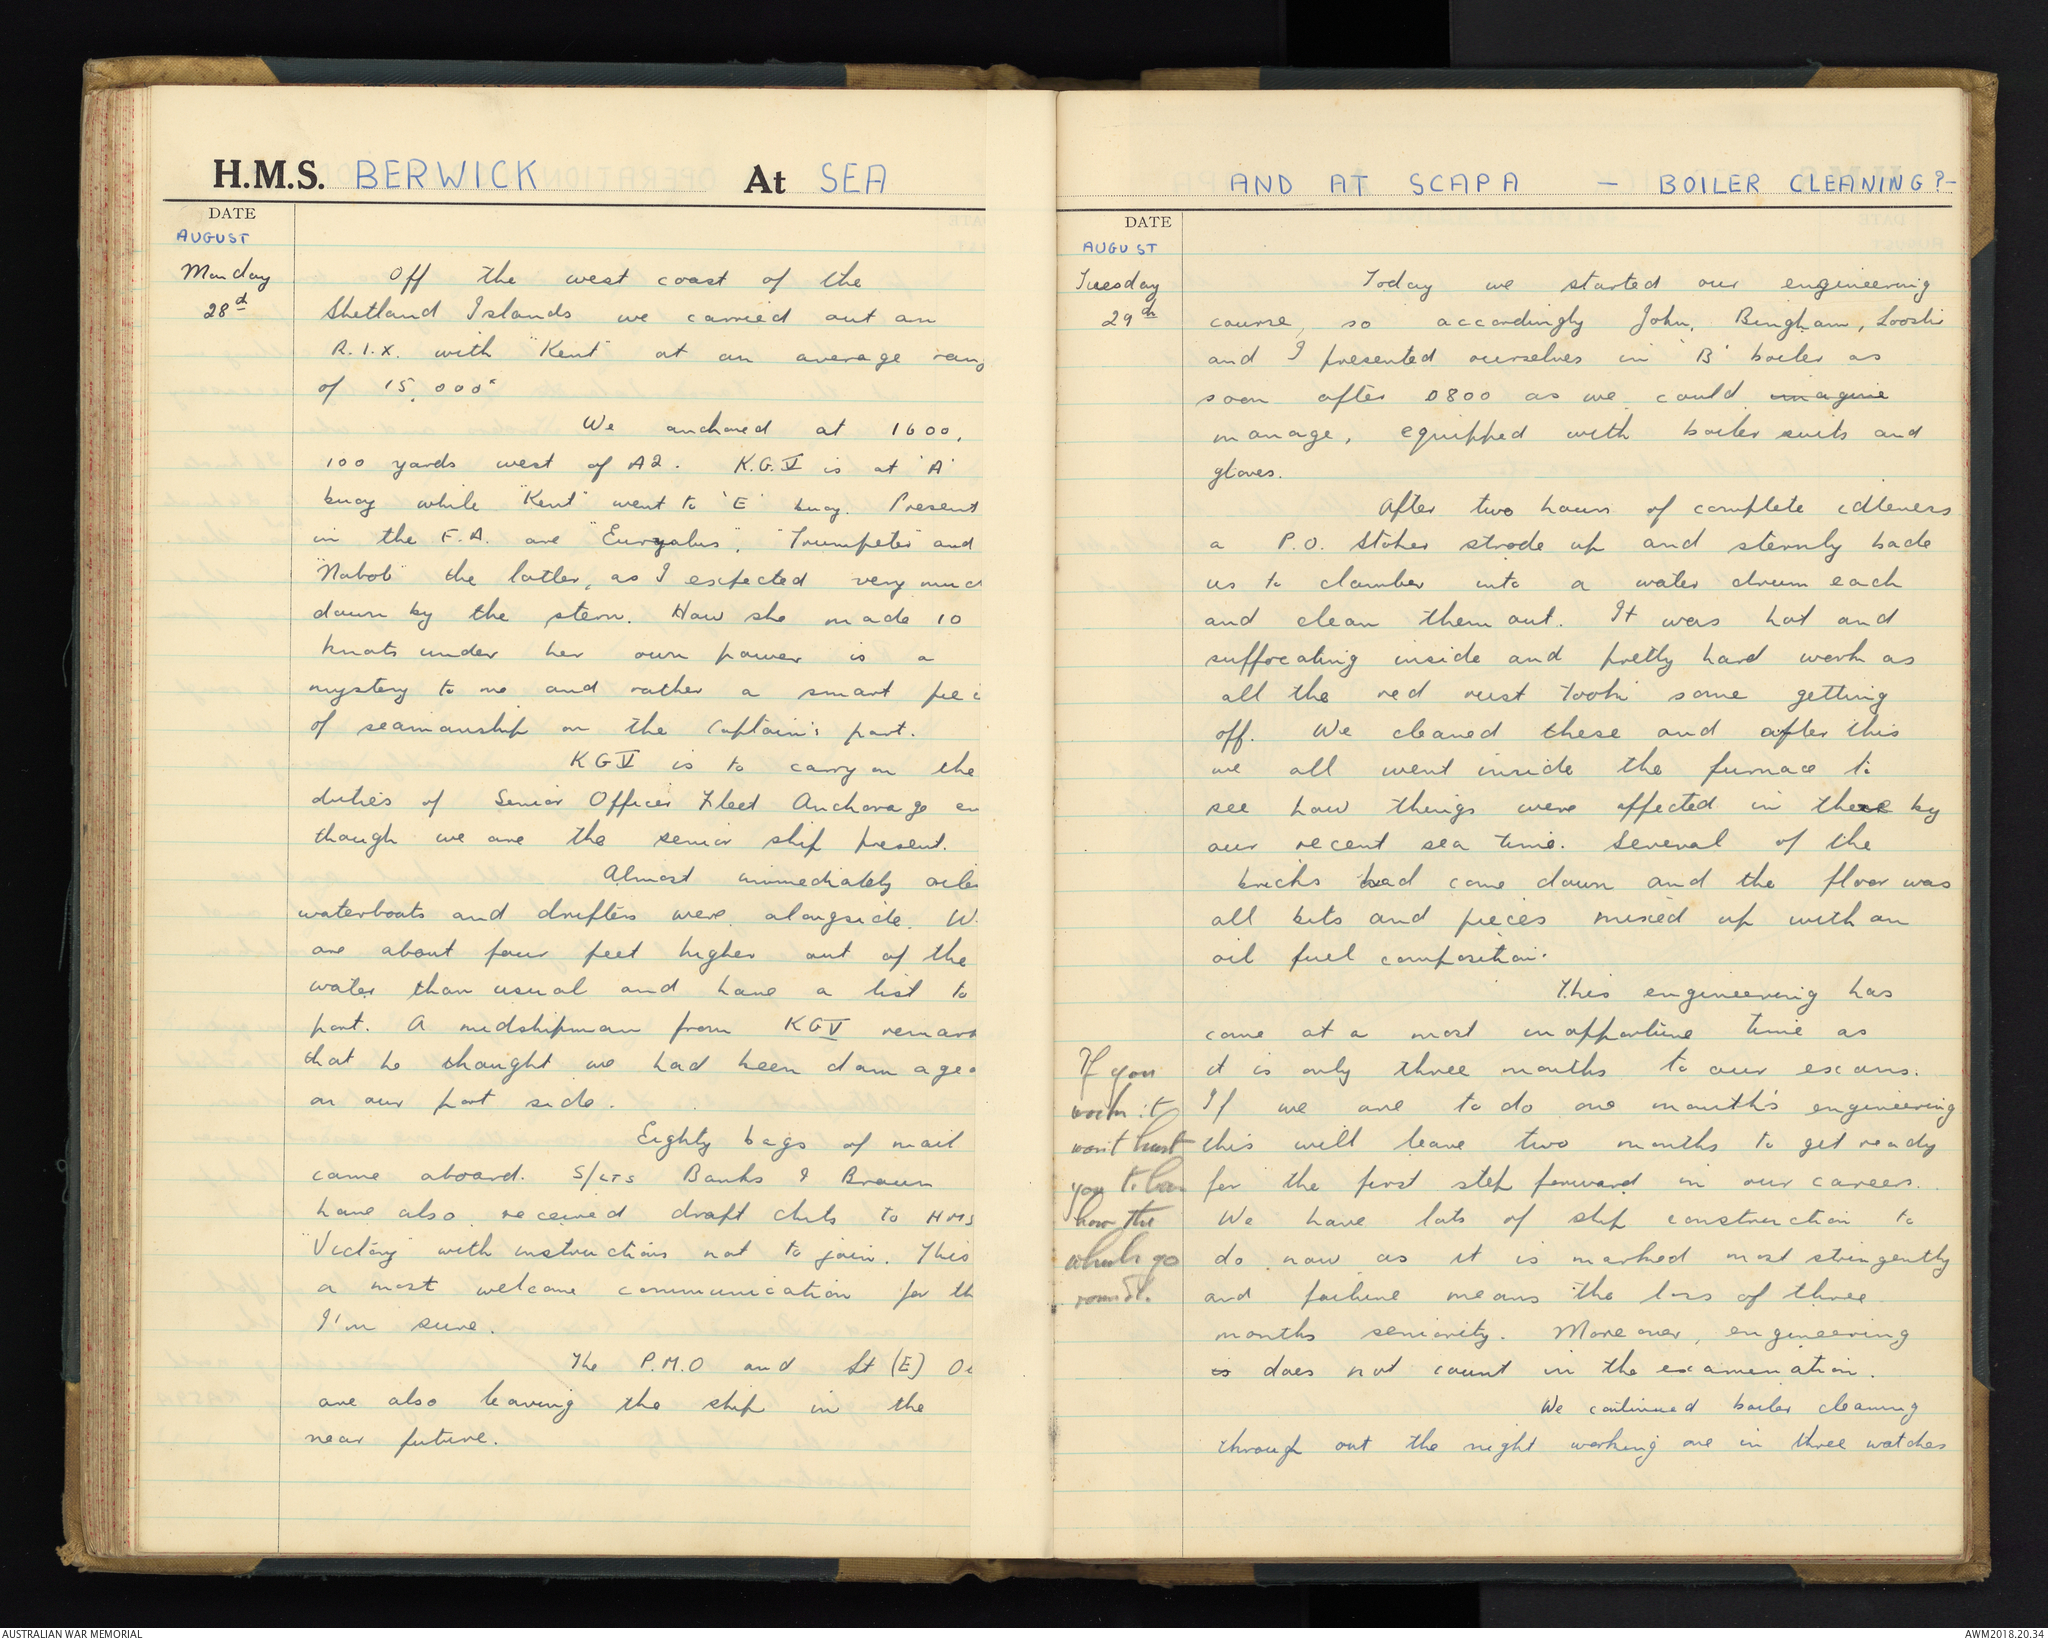 H.M.S. BERWICK At SEA
DATE
AUGUST
Monday
28th
Off the west coast of the
Shetland Islands we carried out an
R.I.X. with "Kent" at an average rang
of 15,000x
We anchored at 1600,
100 yards west of A2. K.G.V is at 'A'
buoy while "Kent" went to 'E' buoy. Present
in the F.A. are "Euryalus", "Trumpeter" and
"Nabob" the latter, as I expected very muc
down by the stern. How she made 10
knots under her own power is a
mystery to me and rather a smart piec
of seamanship on the Captain's part.
KGV is to carry on the
duties of Senior Officer Fleet Anchorage
though we are the senior ship present.
Almost immediately oiler
waterboats and drifters were alongside. W
are about four feet higher out of the
water than usual and have a list to
port. A midshipman from KGV remark
that he thought we had been damaged
on our port side.
Eighty bags of mail
came aboard. S/LTS Banks & Braun
have also received draft chits to HMS
"Victory" with instructions not to join. This
a most welcome communication for th
I'm sure.
The P.M.O and Lt (E)
are also leaving the ship in the
near future.
AND AT SCAPA - BOILER CLEANING?-
DATE
AUGUST
Tuesday
29th
Today we started our engineering
course, so accordingly John, Bingham,
and I presented ourselves in 'B' boiler as
soon after 0800 as we could imagine
manage, equipped with boiler suits and
gloves.
After two hours of complete idleness
a P.O. Stoker strode up and sternly bade
us to clamber into a water drum each
and clean them out. It was hot and
suffocating inside and pretty hard work as
all the red rust took some getting
off. We cleaned these and after this
we all went inside the furnace to
see how things were affected in there by
our recent sea time. Several of the
bricks had come down and the floor was
all bits and pieces mixed up with an
oil fuel composition.
This engineering has
come at a most inopportune time as
it is only three months to our exams.
If we are to do one month's engineering
this will leave two months to get ready
for the first step forward in our careers.
We have lots of ship construction to
do now as it is marked most stringently
and failure means the loss of three
months seniority. Moreover, engineering
is does not count in the examination.
We continued boiler cleaning
through out the night working one in three watches
If you
work it
won't hurt
you to learn
how the
wheels go
round.
AUSTRALIAN WAR MEMORIAL
AWM2018.20.34